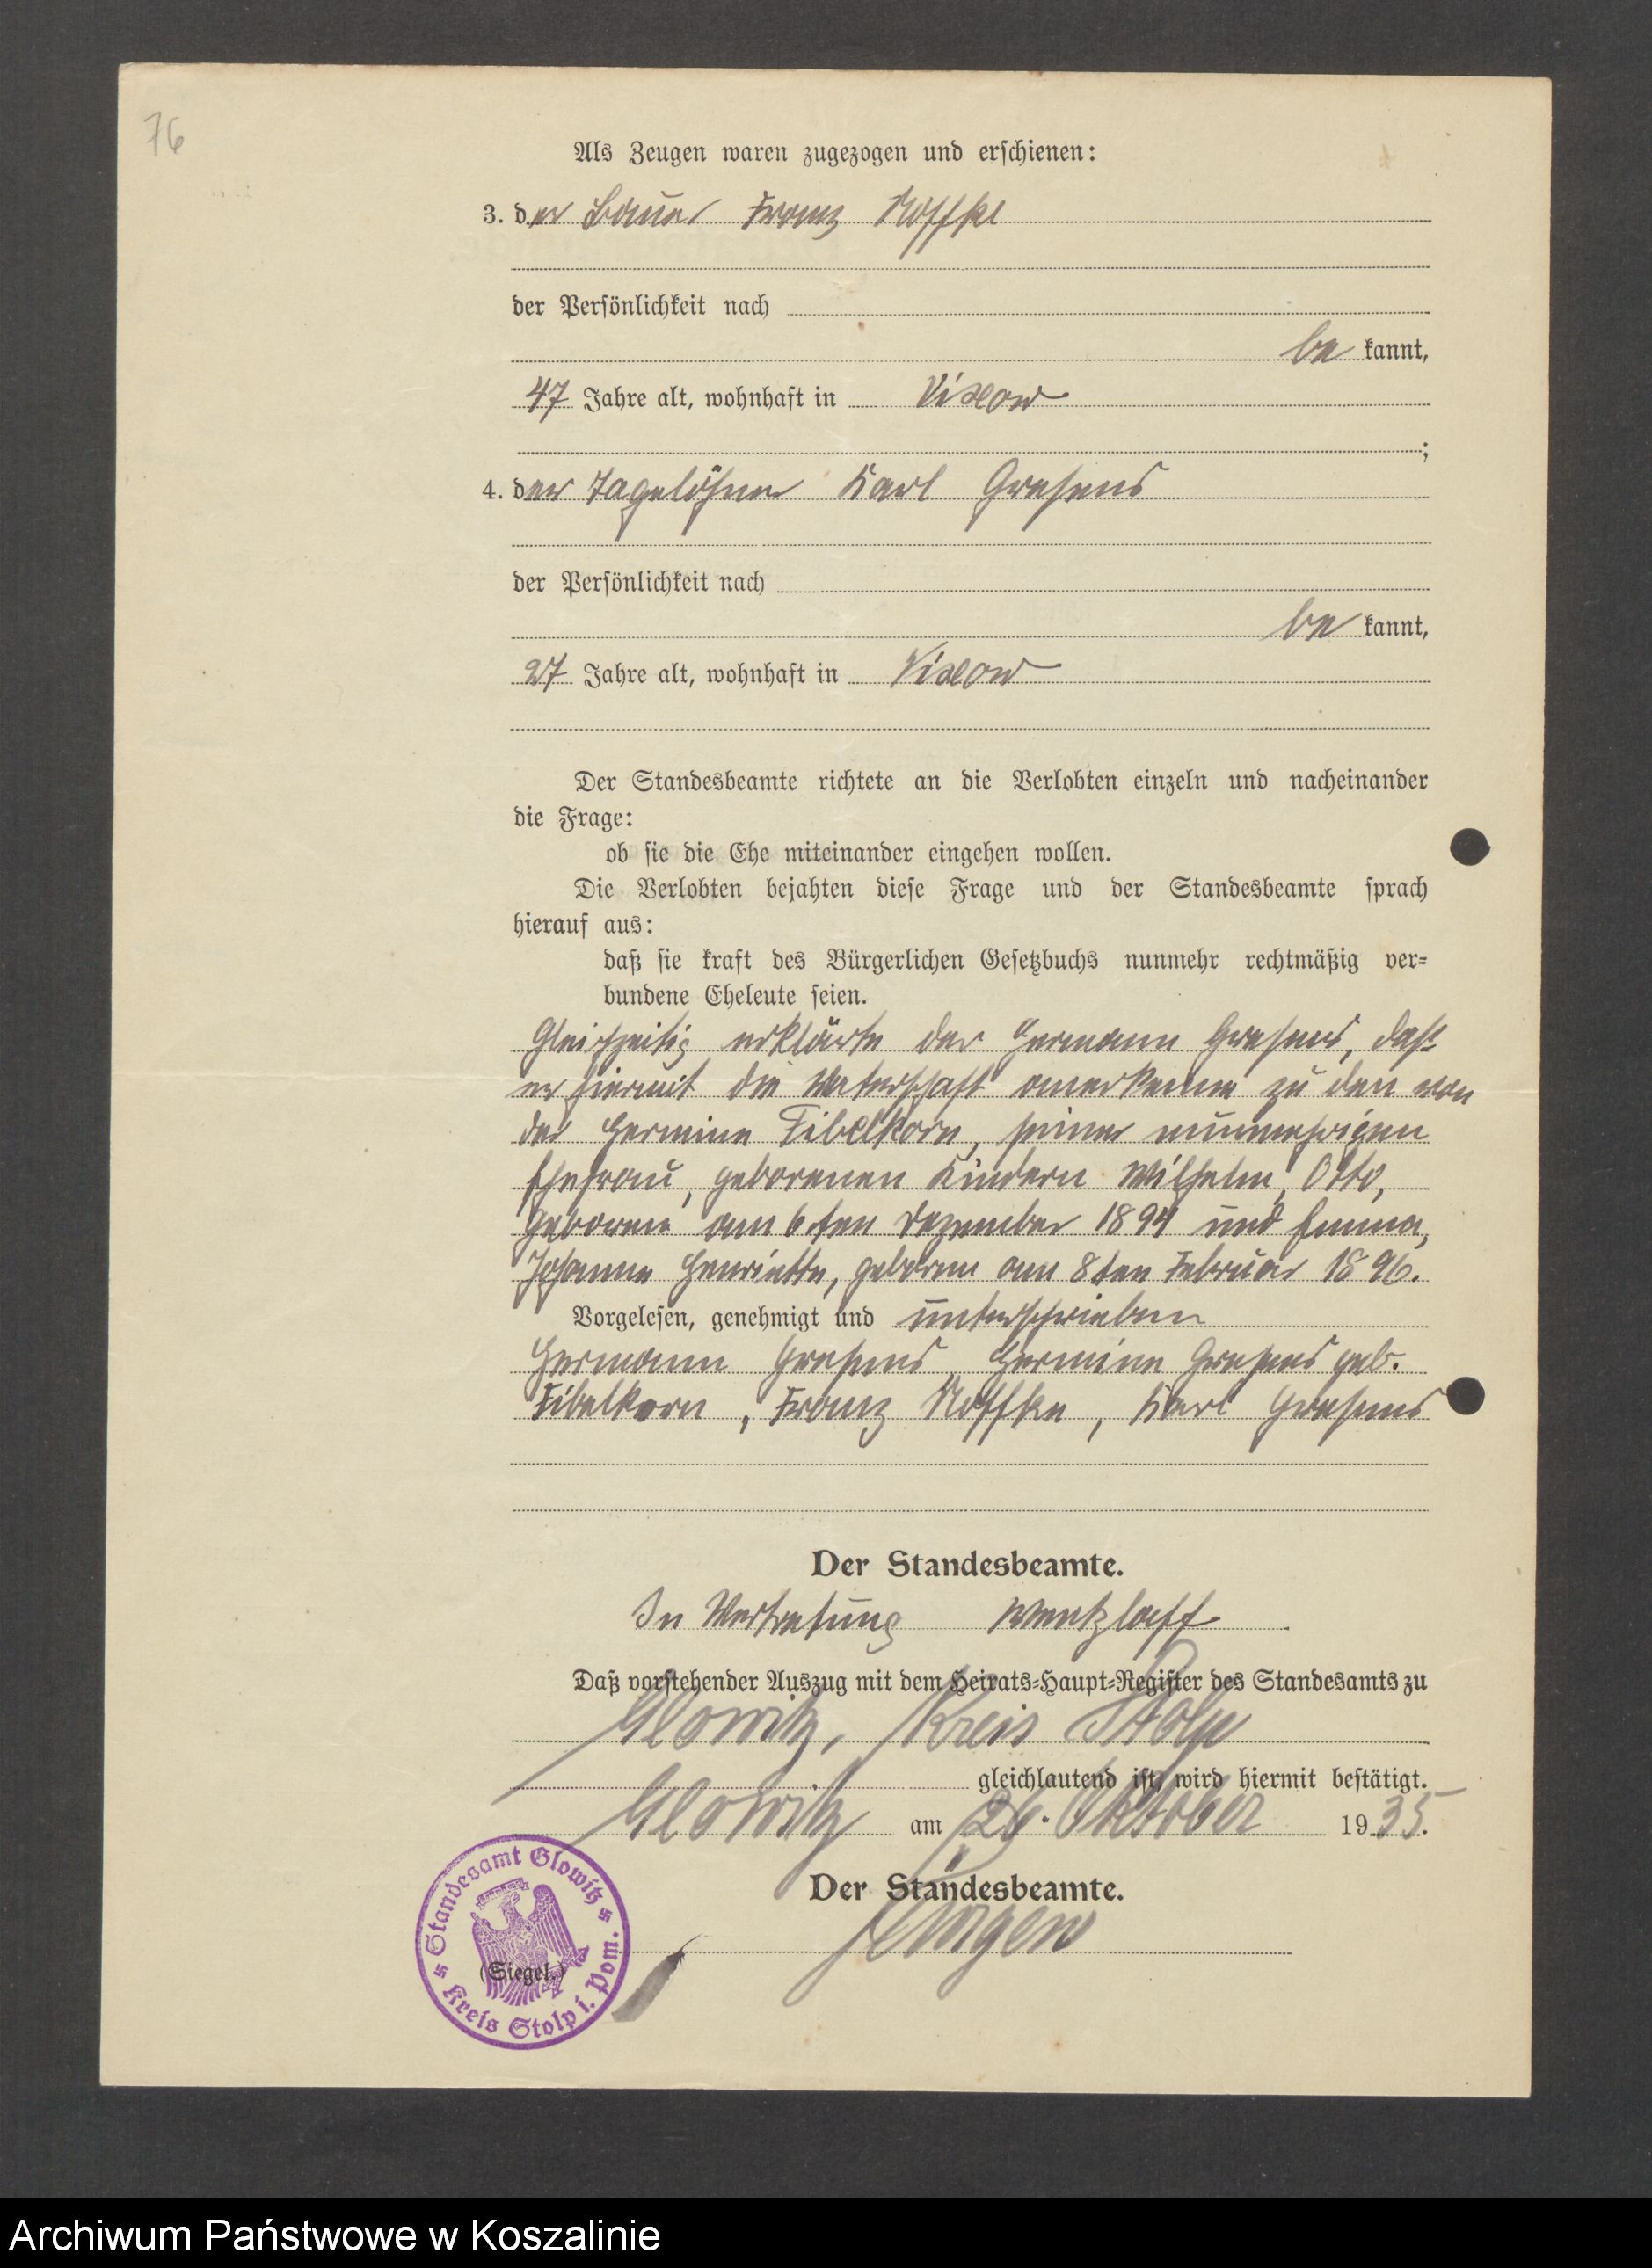 76
Als Zeugen waren zugezogen und erschienen:
3. der Bauer Franz Noffke
der Persönlichkeit nach
be kannt,
47 Jahre alt, wohnhaft in Vixow
;
4. der Tagelöhner Karl Gresens
der Persönlichkeit nach
be kannt,
27 Jahre alt, wohnhaft in Vixow
Der Standesbeamte richtete an die Verlobten einzeln und nacheinander
die Frage:
ob sie die Ehe miteinander eingehen wollen.
Die Verlobten bejahten diese Frage und der Standesbeamte sprach
hierauf aus:
daß sie kraft des Bürgerlichen Gesetzbuchs nunmehr rechtmäßig ver=
bundene Eheleute seien.
Gleichzeitig erklärte der Hermann Gresens, daß
er hiermit die Vaterschaft anerkenne zu den von
der Hermine Fibelkorn, seiner nunmehrigen
Ehefrau, geborenen Kindern Wilhelm, Otto,
geboren am 6ten Dezember 1894 und Emma,
Johanne Henriette, geboren am 8ten Februar 1896.
Vorgelesen, genehmigt und unterschrieben
Hermann Gresens, Hermine Gresens geb.
Fibelkorn, Franz Noffke, Karl Gresens
Der Standesbeamte.
In Vertretung Wentzlaff
Daß vorstehender Auszug mit dem Heirats=Haupt=Register des Standesamts zu
Glowitz, Kreis Stolp
gleichlautend ist, wird hiermit bestätigt.
Glowitz am 26. Oktober 1935.
Der Standesbeamte.
Standesamt Glowitz
(Siegel.)
Kreis Stolp i. Pom.
Archiwum Państwowe w Koszalinie